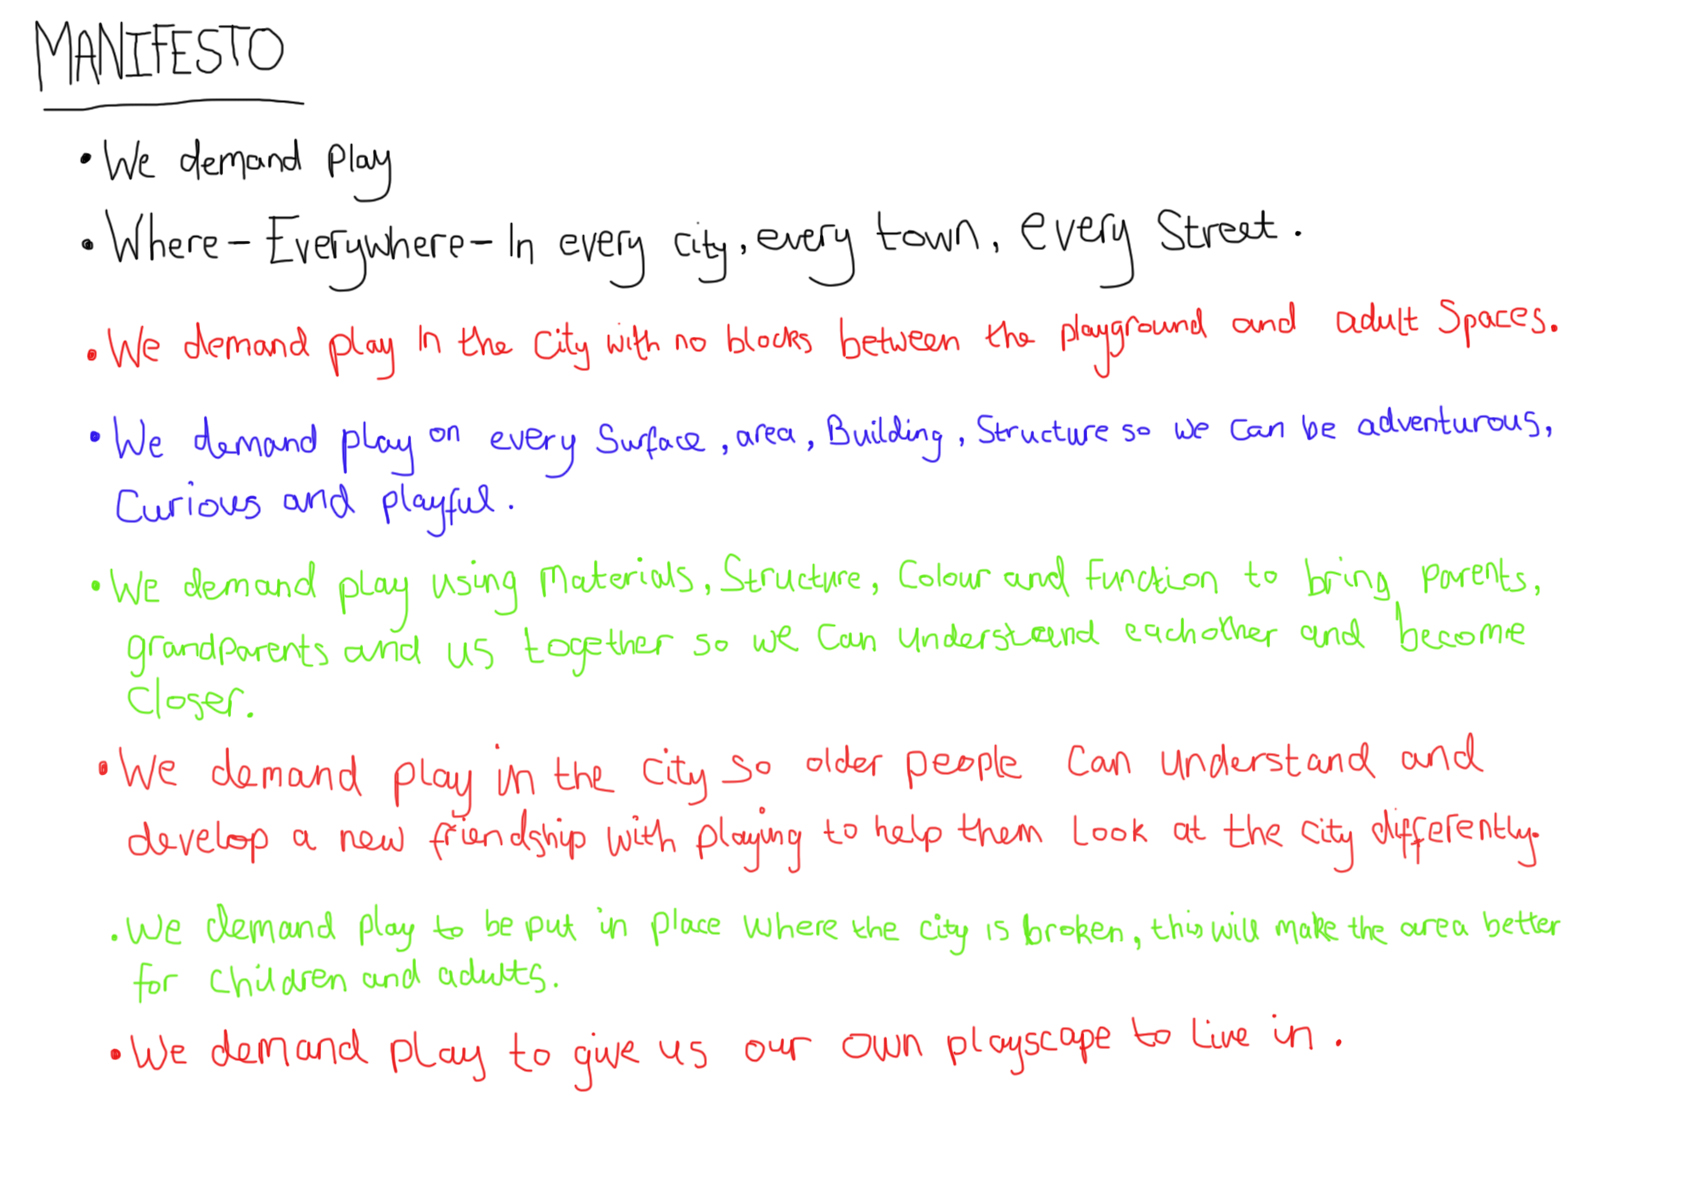 MANIFESTO
• We demand play
• Where - Everywhere - In every city, every town, every Street.
• We demand play In the City with no blocks between the playground and adult Spaces.
• We demand play on every Surface, area, Building, Structure so we can be adventurous,
Curious and playful.
• We demand play using Materials, Structure, Colour and Function to bring parents,
grandparents and us together so we can understand eachother and become
closer.
• We demand play in the city so older people can understand and
develop a new friendship with playing to help them look at the city differently.
. We demand play to be put in place where the city is broken, this will make the area better
for children and adults.
• We demand play to give us our own playscape to live in.